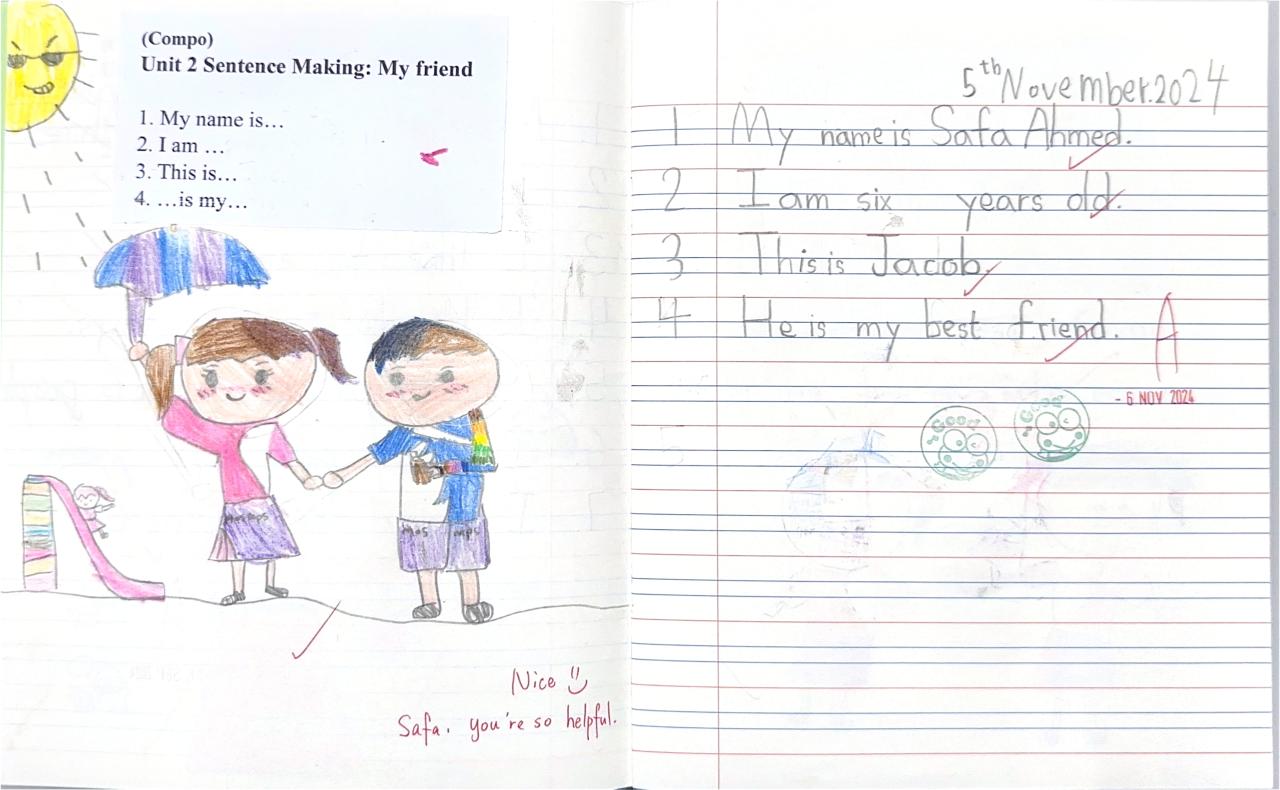 (Compo)
Unit 2 Sentence Making: My friend
1. My name is…
2. I am …
3. This is…
4. …is my…
Nice
Safa. you're so helpful.
5th November.2024
1 My name is Safa Ahmed.
2 I am six years old.
3 This is Jacob.
4 He is my best friend.
A
- 6 NOV 2024
GOOD!
GOOD!